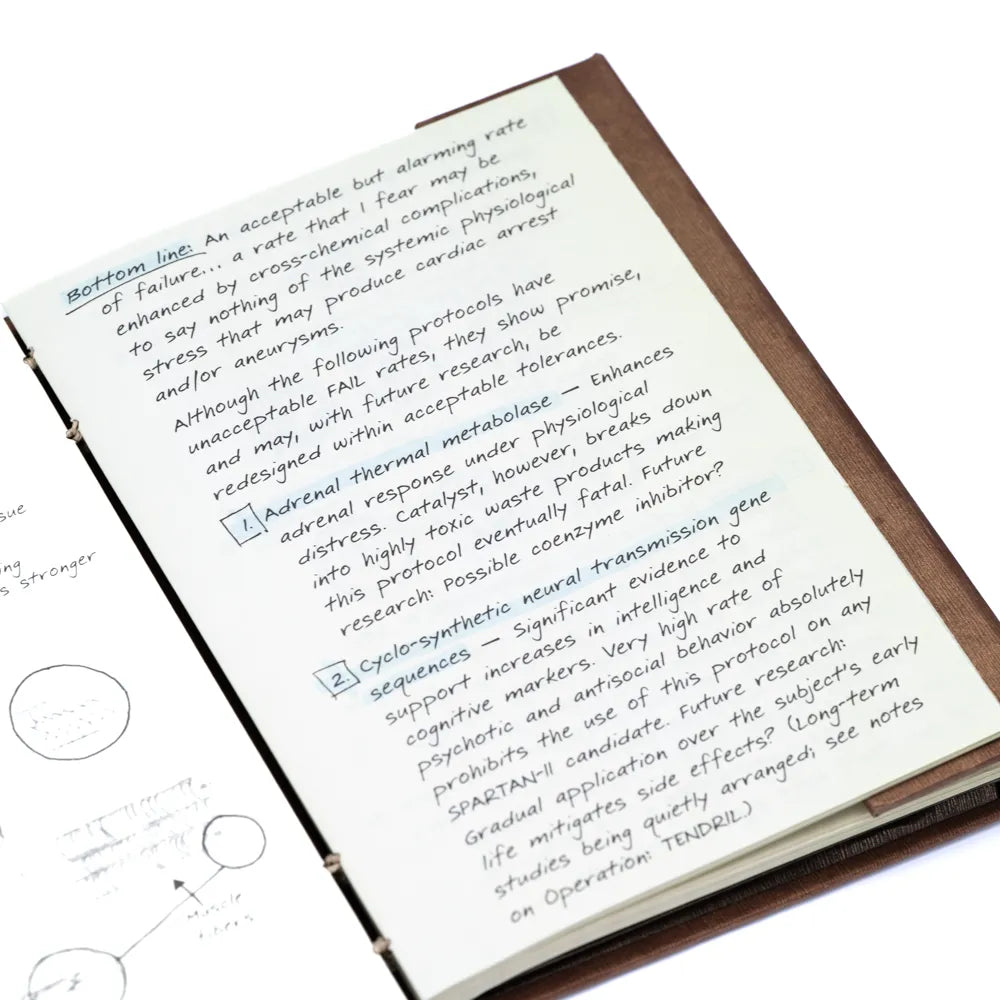 sue
ing
s stronger
Muscle
fibers
Bottom line: An acceptable but alarming rate
of failure... a rate that I fear may be
enhanced by cross-chemical complications,
to say nothing of the systemic physiological
stress that may produce cardiac arrest
and/or aneurysms.
Although the following protocols have
unacceptable FAIL rates, they show promise,
and may, with future research, be
redesigned within acceptable tolerances.
1. Adrenal thermal metabolase — Enhances
adrenal response under physiological
distress. Catalyst, however, breaks down
into highly toxic waste products making
this protocol eventually fatal. Future
research: Possible coenzyme inhibitor?
2. Cyclo-synthetic neural transmission gene
sequences — Significant evidence to
support increases in intelligence and
cognitive markers. Very high rate of
psychotic and antisocial behavior absolutely
prohibits the use of this protocol on any
SPARTAN-II candidate. Future research:
Gradual application over the subject's early
life mitigates side effects? (Long-term
studies being quietly arranged; see notes
on Operation: TENDRIL.)